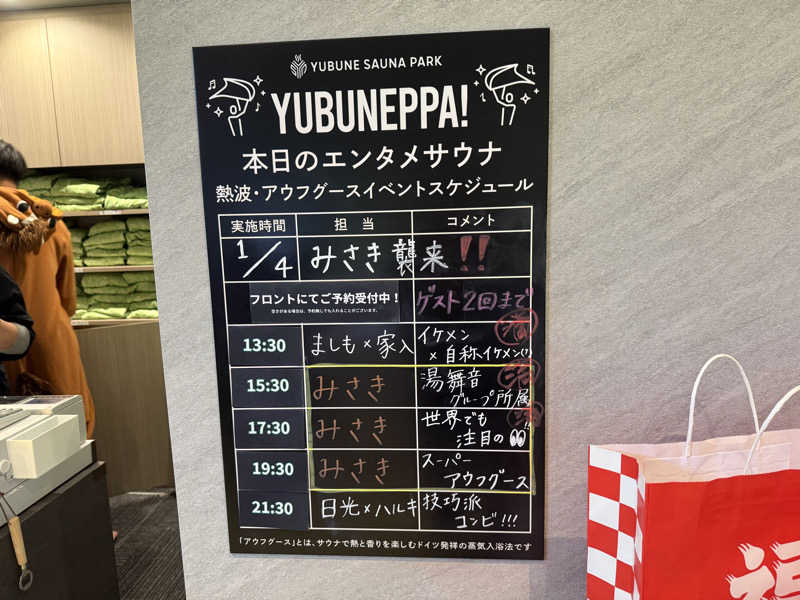 YUBUNE SAUNA PARK
YUBUNEPPA!
本日のエンタメサウナ
熱波・アウフグースイベントスケジュール
実施時間 担当 コメント
1/4 みさき襲来!!
フロントにてご予約受付中! ゲスト2回まで
空きがある場合は、予約無しでも入れることがございます。
13:30 ましも×家入 イケメン
×自称イケメン(?) 満
15:30 みさき 湯舞音
グループ所属 満
17:30 みさき 世界でも
注目の!! 満
19:30 みさき スーパー
アウフグース
21:30 日光×ハルキ 技巧派
コンビ!!!
「アウフグース」とは、サウナで熱と香りを楽しむドイツ発祥の蒸気入浴法です
福